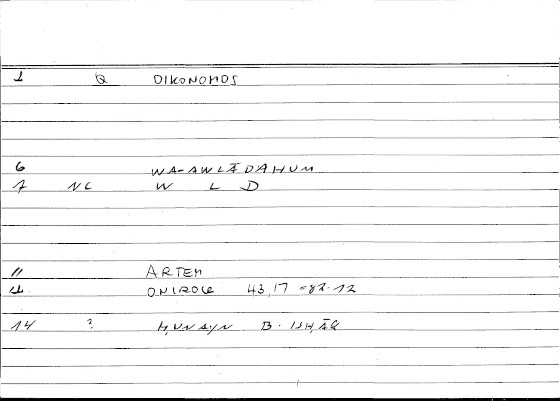 1 Q OIKONOMOS
6 WA-AWLĀDAHUM
7 NC W L D
11 ARTEM
ONIROCR 43,17 =
14 ? H,UNAYN B. ISH,ĀQ